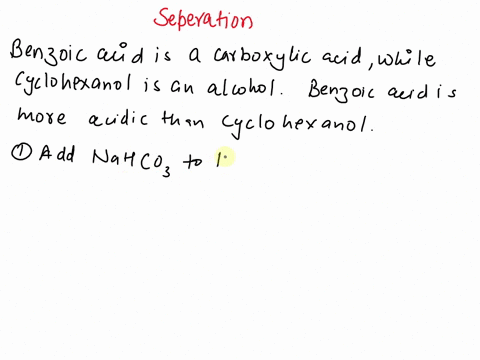 Seperation
Benzoic acid is a carboxylic acid, while
Cyclohexanol is an alcohol. Benzoic acid is
more acidic than cyclohexanol.
① Add NaHCO₃ to